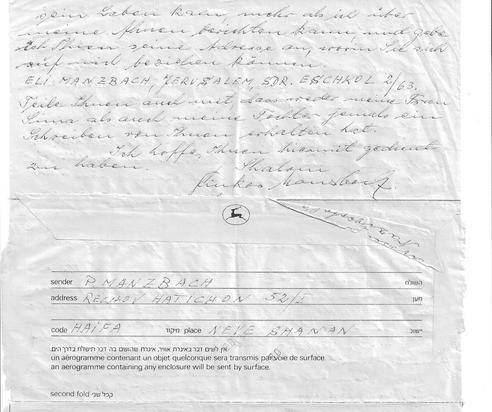 sein Leben kann, mehr als ich über
meine Ahnen berichten kann, und gebe
ich Ihnen seine Adresse an, worin Sie sich
auf mich beziehen können.
ELI MANZBACH, JERUSALEM, SDR. ESCHKOL 2/63.
Teile Ihnen auch mit, dass weder meine Frau
als auch meine Tochter jemals ein
Schreiben von Ihnen erhalten hat.
Ich hoffe, Ihnen hiermit gedient
zu haben.
Shalom
sender P. MANZBACH השולח
address RECHOV HATICHON 52/I מען
code HAIFA מיקוד place NEVE SHANAN ישוב
אין לשים דבר באיגרת אויר, איגרת שהושם בה דבר תישלח בדרך הים.
un aérogramme contenant un objet quelconque sera transmis par voie de surface.
an aerogramme containing any enclosure will be sent by surface.
second fold קפל שני